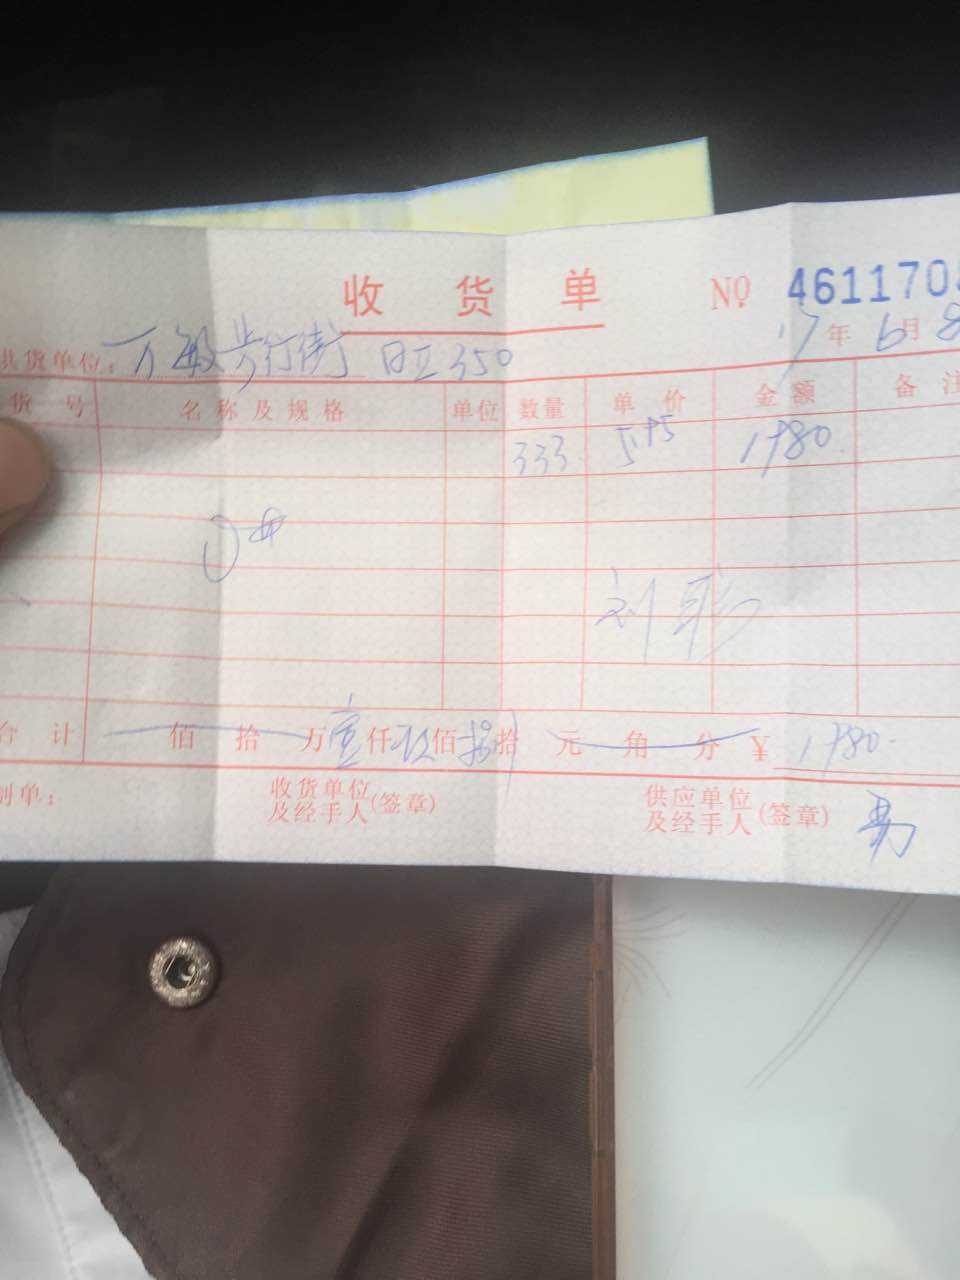 收 货 单 № 461170
17年6月8
供货单位：万敏步行街 日立350
货 号 名 称 及 规 格 单位 数量 单 价 金 额 备 注
333 5.95 1980
0#
刘彩
合 计 佰 拾 万壹仟玖佰捌拾 元 角 分 ¥ 1980.
制单： 收货单位及经手人(签章) 供应单位及经手人(签章)